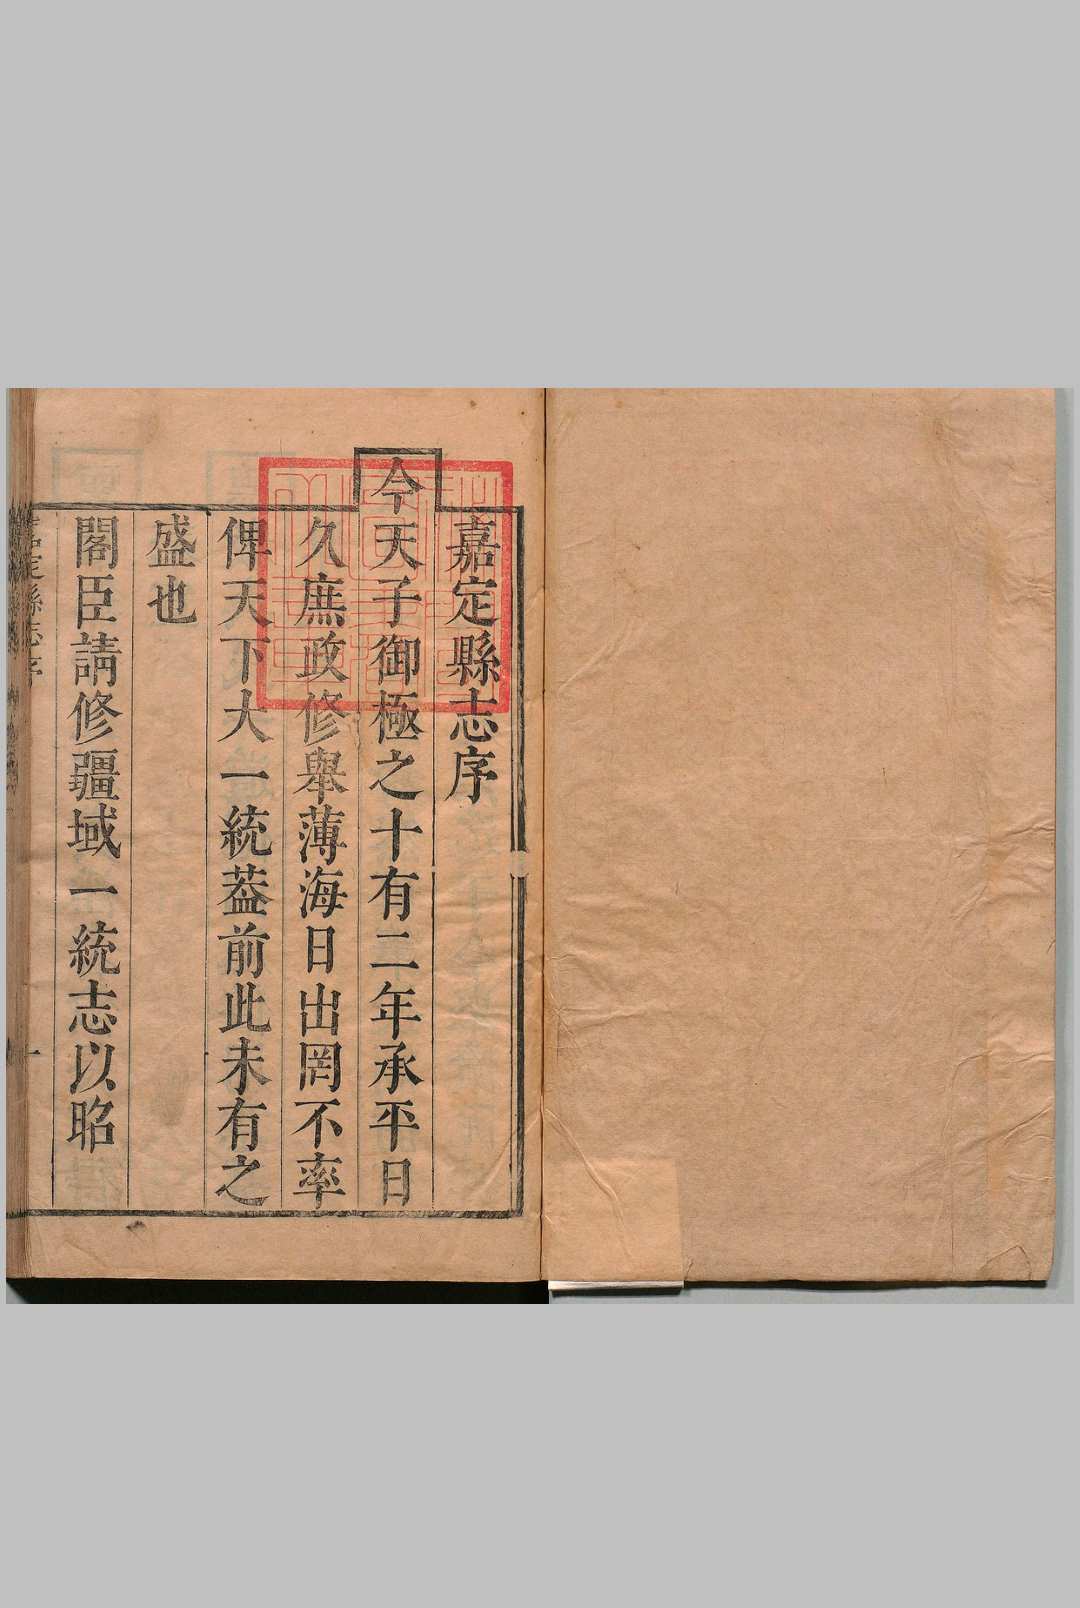 嘉定縣志序
今天子御極之十有二年承平日
久庶政修舉薄海日出罔不率
俾天下大一統葢前此未有之
盛也
閣臣請修疆域一統志以昭